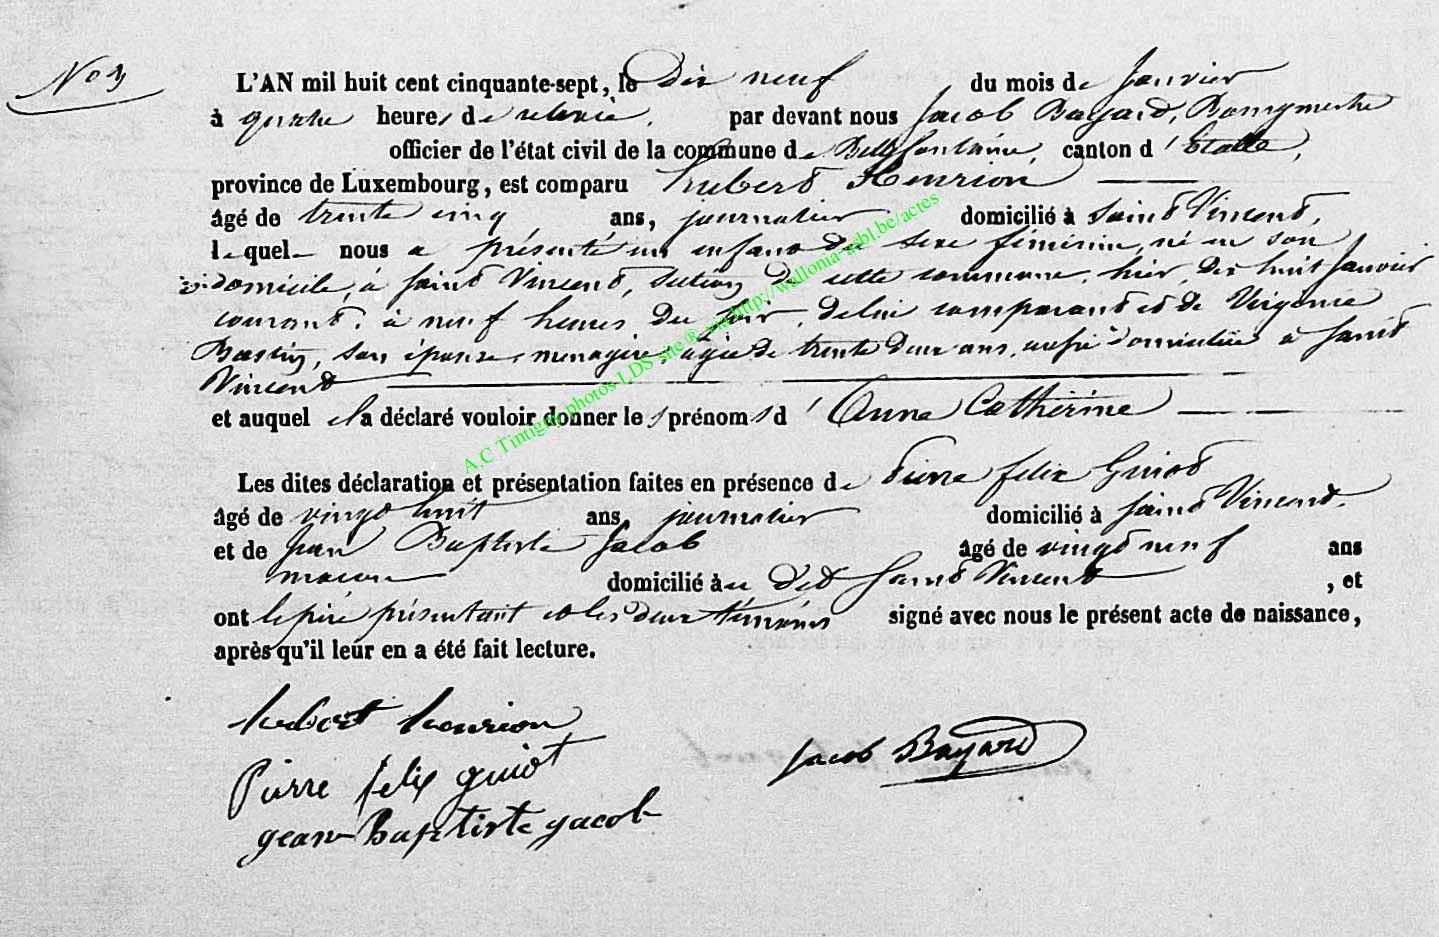 No 3
L'AN mil huit cent cinquante-sept, le Dix neuf du mois de Janvier
à quatre heures de relevée, par devant nous Jacob Bayard, Bourgmestre
officier de l'état civil de la commune de Bellefontaine, canton d'Etalle,
province de Luxembourg, est comparu hubert Henrion
âgé de trente cinq ans, journalier domicilié à Saint Vincent,
lequel nous a présenté un enfant du sexe féminin, né en son
domicile, à Saint Vincent, section de cette commune, hier, dix huit Janvier
courant, à neuf heures du soir, de lui comparant et de Virginie
Bastin, son épouse, menagère, agée de trente deux ans, domiciliée à Saint
Vincent
et auquel il a déclaré vouloir donner les prénoms d'Anne Catherine
Les dites déclaration et présentation faites en présence de Pierre felix Guiot
âgé de vingt huit ans, journalier domicilié à Saint Vincent.
et de jean Baptiste Jacob âgé de vingt neuf ans
macon domicilié à u dit Saint Vincent, et
ont le père présentant et les deux témoins signé avec nous le présent acte de naissance,
après qu'il leur en a été fait lecture.
hubert henrion
Pierre felix guiot
gean Baptiste jacob
Jacob Bayard
A.C Tintigny photos LDS site ® via http://wallonia-asbl.be/actes